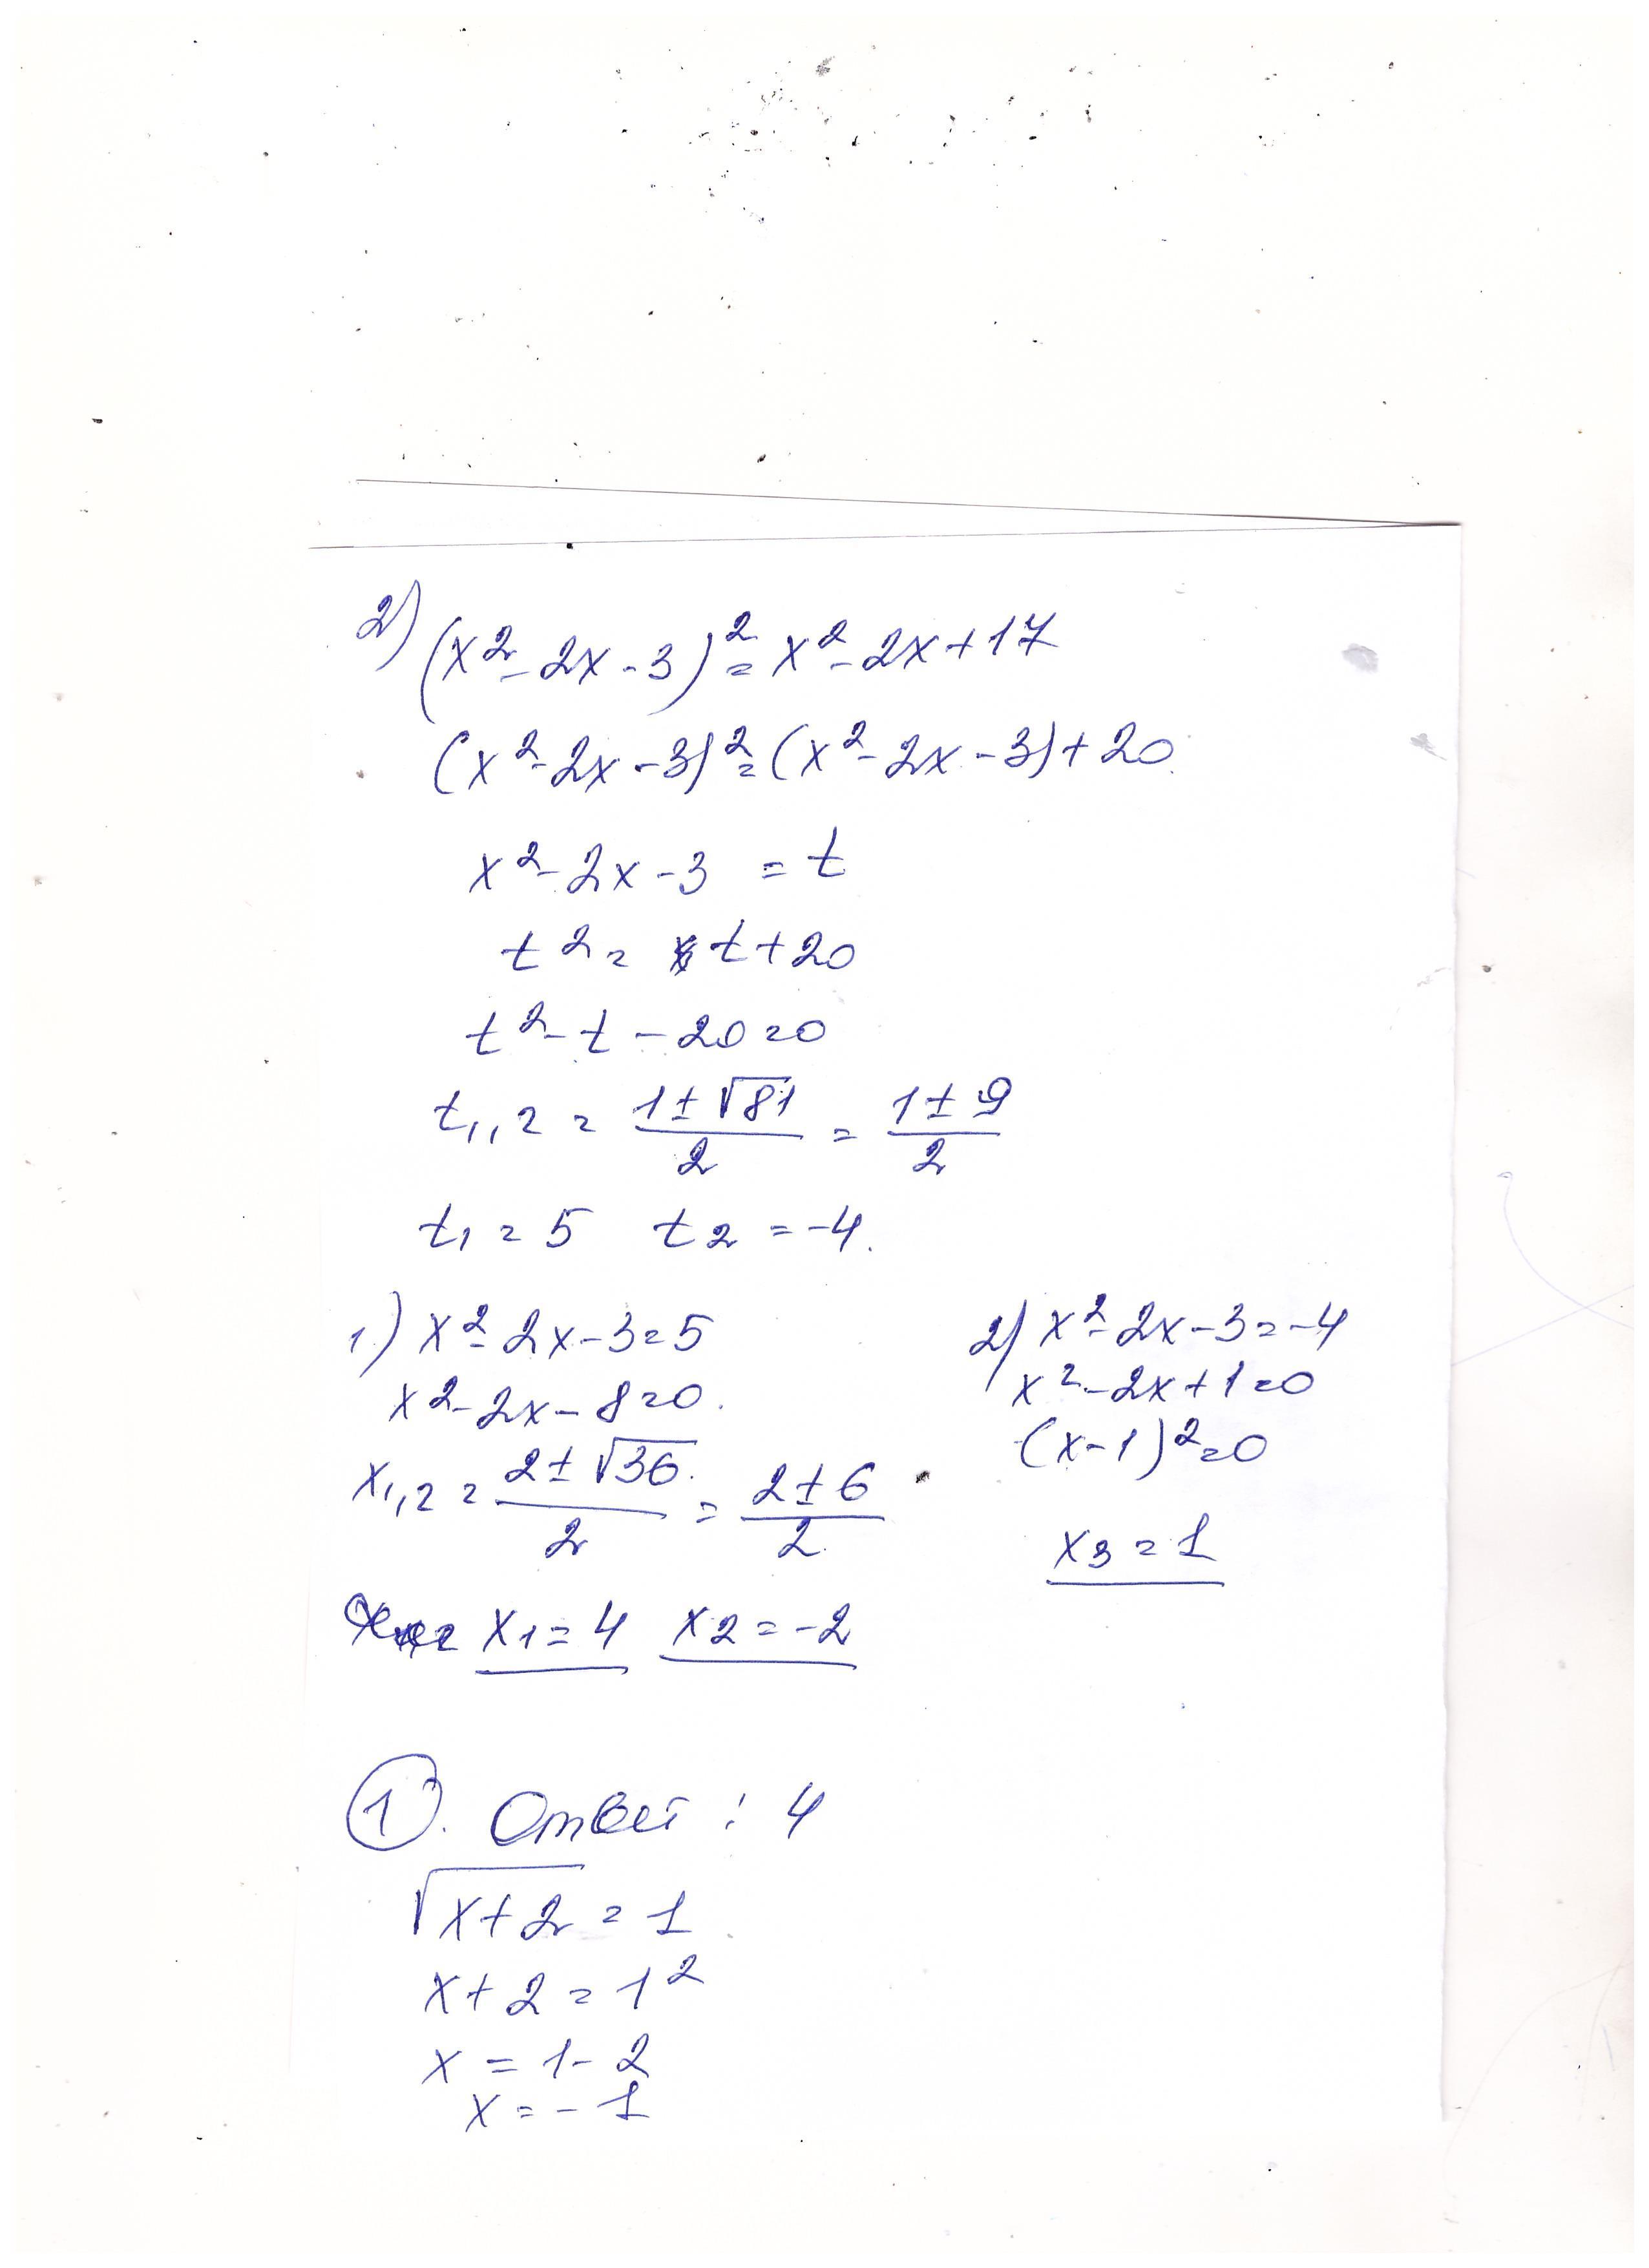 2) (x² - 2x - 3)² = x² - 2x + 17
(x² - 2x - 3)² = (x² - 2x - 3) + 20.
x² - 2x - 3 = t
t² = t + 20
t² - t - 20 = 0
t₁,₂ = (1 ± √81)/2 = (1 ± 9)/2
t₁ = 5 t₂ = -4.
1) x² - 2x - 3 = 5
x² - 2x - 8 = 0.
x₁,₂ = (2 ± √36)/2 = (2 ± 6)/2
x₁ = 4 x₂ = -2
2) x² - 2x - 3 = -4
x² - 2x + 1 = 0
(x - 1)² = 0
x₃ = 1
1. Ответ: 4
√(x + 2) = 1
x + 2 = 1²
x = 1 - 2
x = - 1